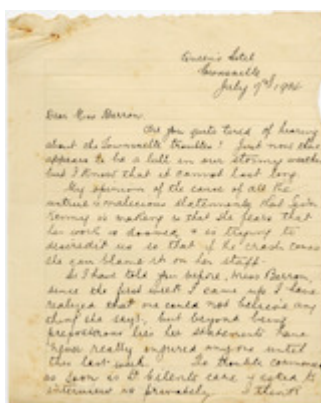 Queen's Hotel
Townsville
July 7th
Dear Miss Barron,
Are you quite tired of hearing
about the Townsville troubles? Just now there
appears to be a lull in our stormy weather
but I know that it cannot last long.
My opinion of the cause of all the
untrue & malicious statements that Sister
Kenny is making is that she fears that
her work is doomed & is trying to
discredit us so that if the crash comes
she can blame it on her staff.
As I have told you before, Miss Barron,
since the first week I came up I have
realized that one could not believe any
thing she says, but beyond being
preposterous lies her statements have
never really injured anyone until
this last week. The trouble commenced
as soon as Dr Cilento came & asked to
interview us privately. I think